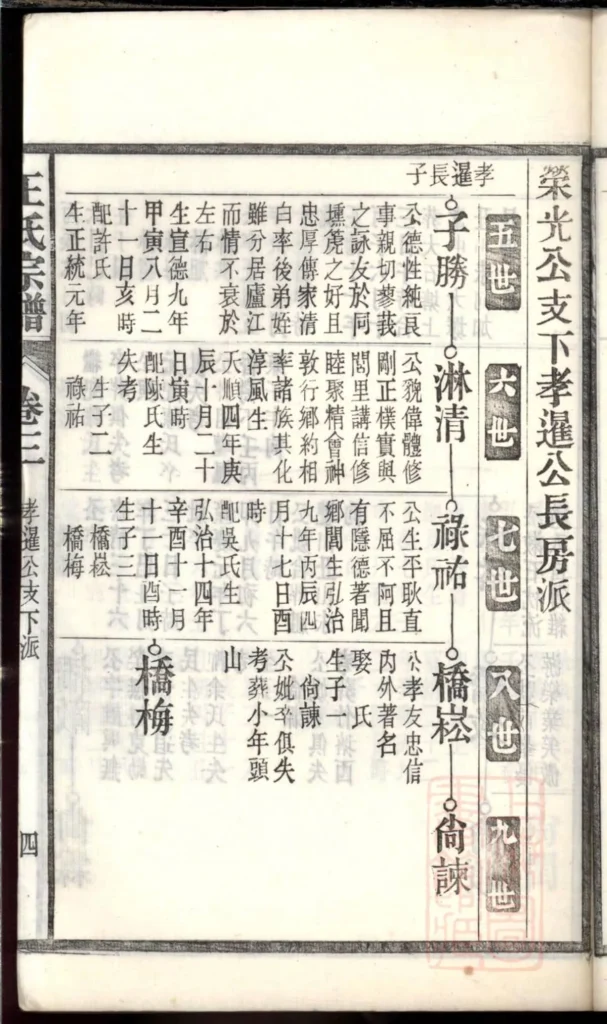 榮光公支下孝暹公長房派
五世
六世
七世
八世
九世
孝暹長子
子勝
公德性純良
事親切蓼莪
之詠友於同
壎篪之好且
忠厚傳家清
白率後弟姪
雖分居廬江
而情不衰於
左右
生宣德九年
甲寅八月二
十一日亥時
配許氏
生正統元年
淋清
公貌偉體修
剛正樸實與
閭里講信修
睦聚精會神
敦行鄉約相
率諸族其化
淳風生
天順四年庚
辰十月二十
日寅時
配陳氏生
失考
生子二
祿祐
祿祐
公生平耿直
不屈不阿且
有隱德著聞
鄉閭生弘治
九年丙辰四
月十七日酉
時
配吳氏生
弘治十四年
辛酉十一月
十一日酉時
生子三
橋崧
橋梅
橋崧
公孝友忠信
內外著名
娶氏
生子一
尙諫
公妣卒俱失
考葬小年頭
山
橋梅
尙諫
王氏宗譜
卷三
孝暹公支下派
四